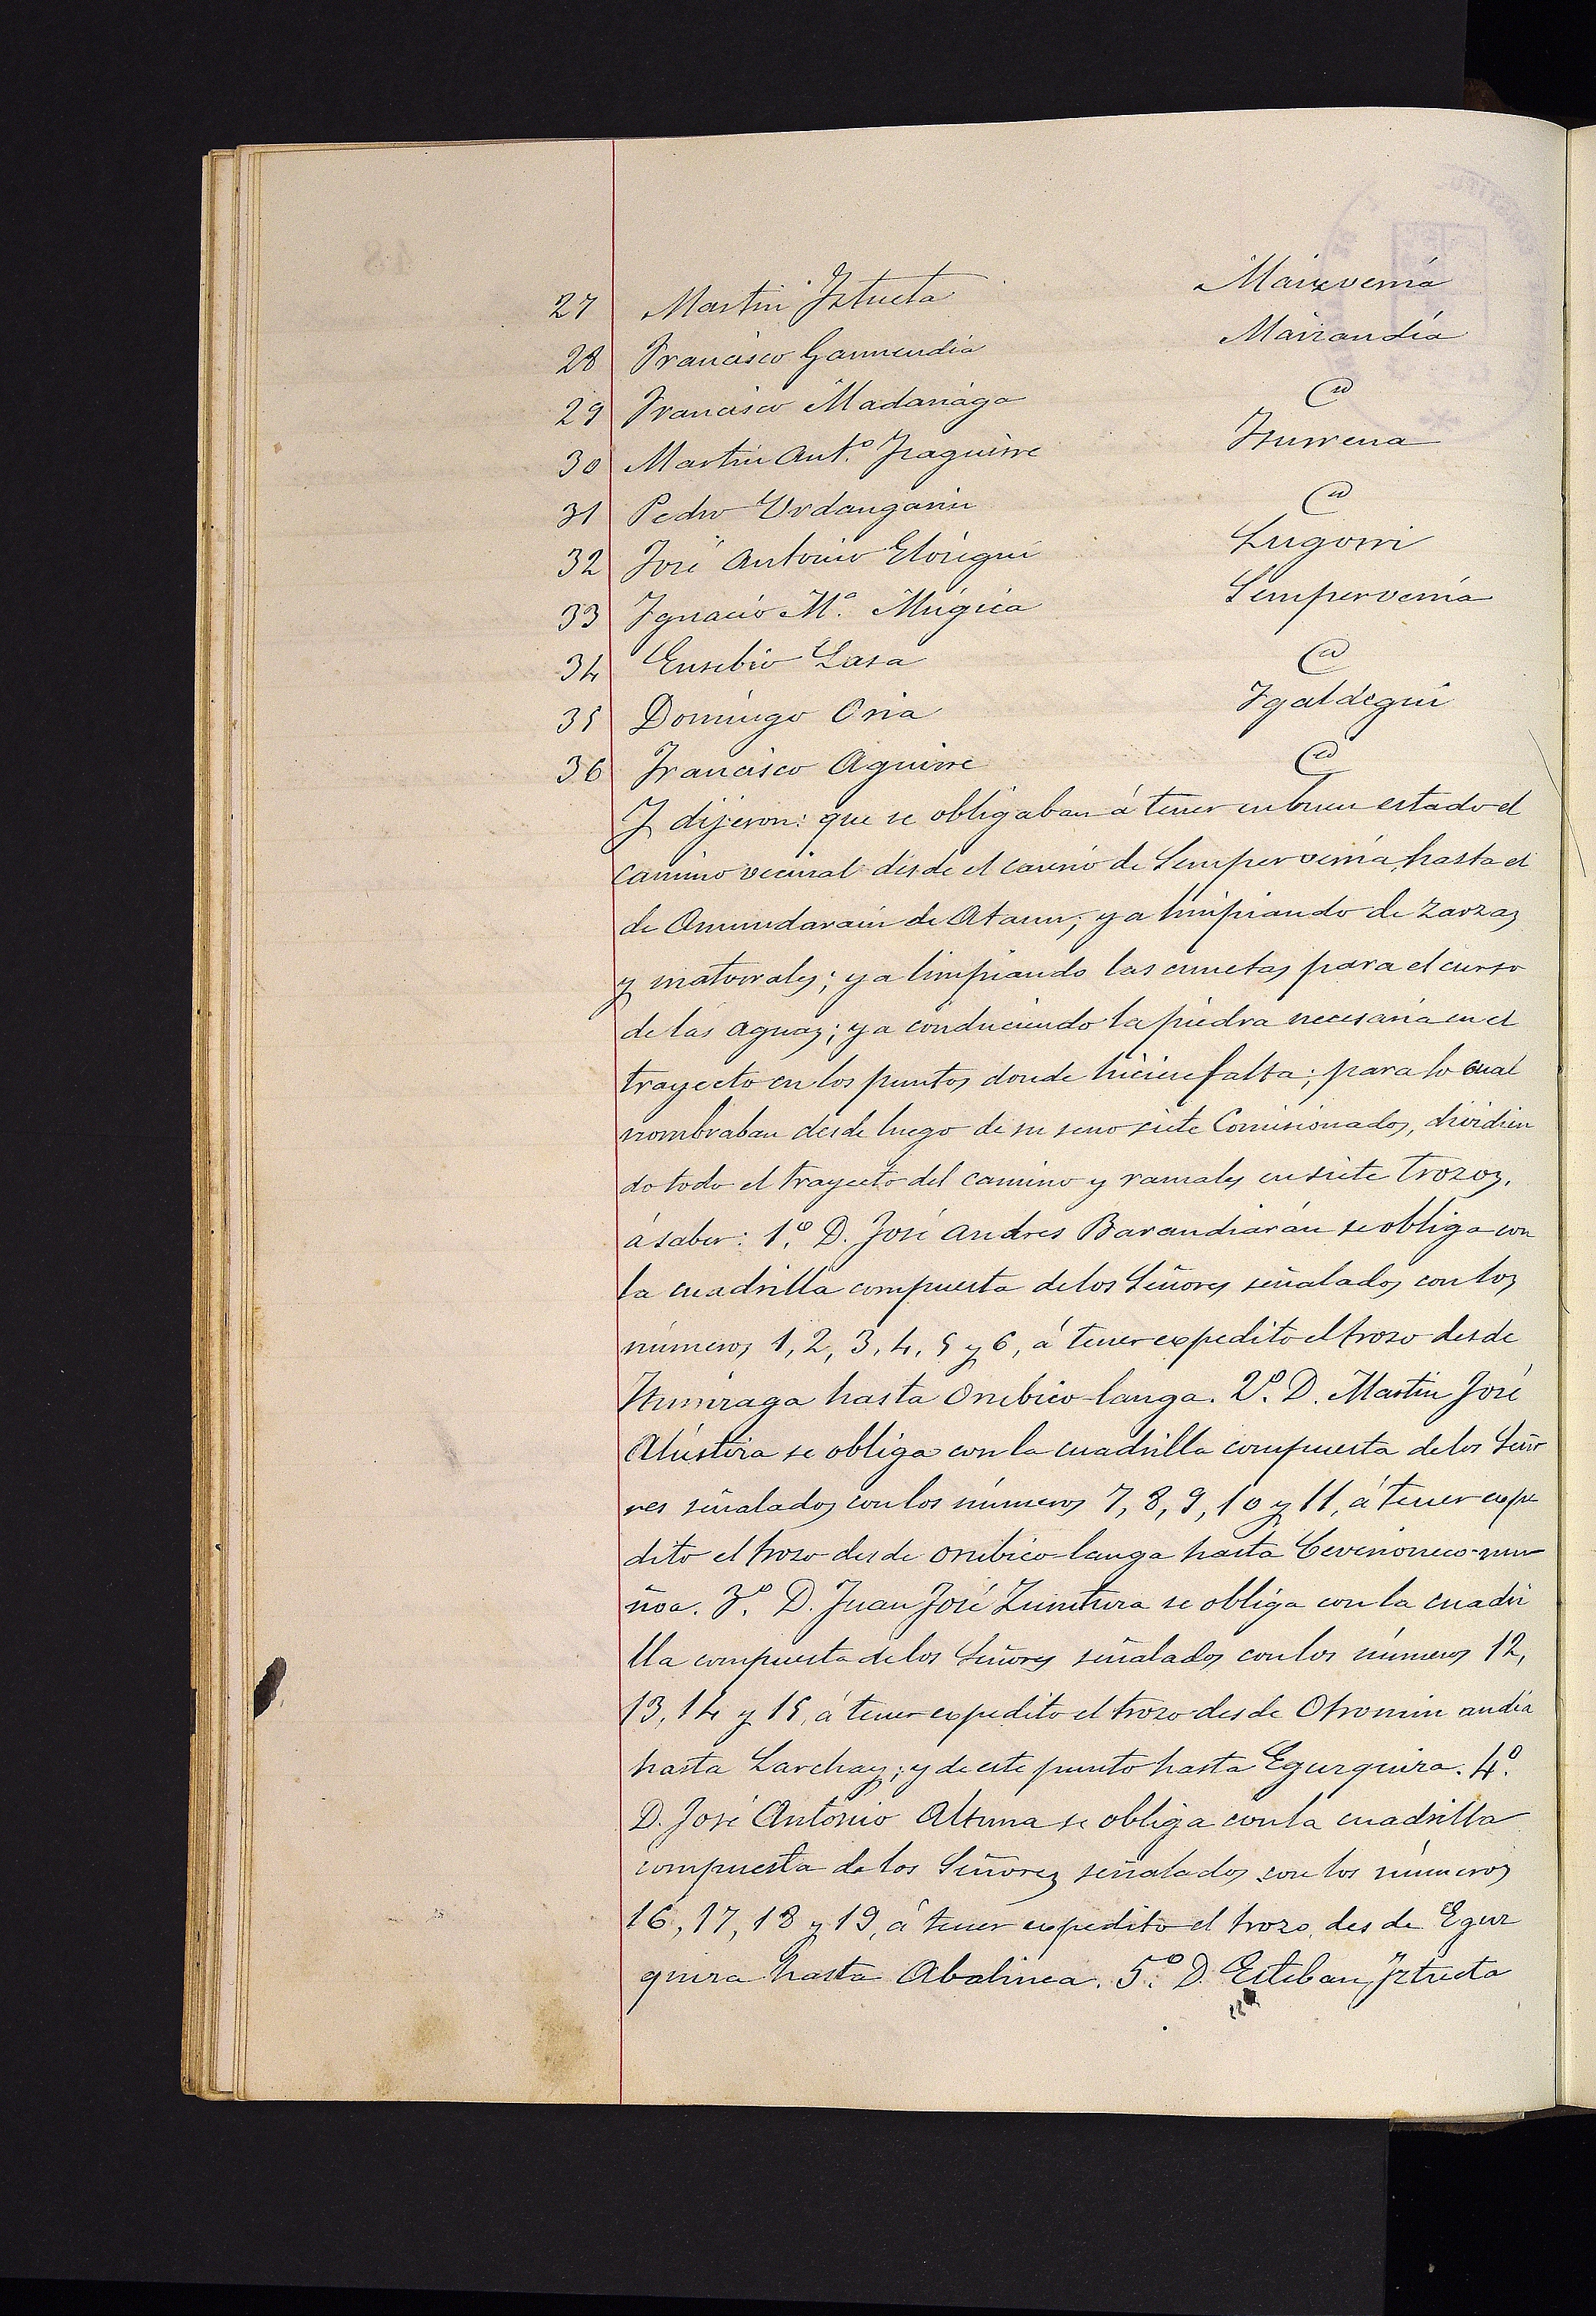 27 Martin Iztueta Maizvernía
28 Francisco Garmendia Mairandía
29 Francisco Madariaga Id
30 Martin Ant.º Izaguirre Iturrena
31 Pedro Urdangarin Id
32 José Antonio Elósegui Lugorri
33 Ignacio M.ª Múgica Sempervernía
34 Eusebio Lasa Id
35 Domingo Oria Igaldegui
36 Francisco Aguirre Id
Y dijeron: que se obligaban á tener en buen estado el
camino vecinal desde el caserio de Sempervernía hasta el
de Amundarain de Ataun; ya limpiando de zarzas
y matorrales; ya limpiando las cunetas para el curso
de las aguas; ya conduciendo la piedra necesaria en el
trayecto en los puntos donde hiciese falta; para lo cual
nombraban desde luego de su seno siete Comisionados, dividien
do todo el trayecto del camino y ramales en siete trozos,
á saber: 1.º D. José Andres Barandiarán se obliga con
la cuadrilla compuesta de los Señores señalados con los
números 1, 2, 3, 4, 5 y 6, á tener expedito el trozo desde
hasta Oribico-langa. 2.º D. Martin José
Alústiza se obliga con la cuadrilla compuesta de los Seño
res señalados con los números 7, 8, 9, 10 y 11, á tener expe
dito el trozo desde Oribico-langa hasta
ñoa. 3.º D. Juan José Zurutuza se obliga con la cuadri
lla compuesta de los Señores señalados con los números 12,
13, 14 y 15, á tener expedito el trozo desde Otromin andia
hasta Larchay; y de este punto hasta Egurquiza. 4.º
D. José Antonio Altuna se obliga con la cuadrilla
compuesta de los Señores señalados con los números
16, 17, 18 y 19, á tener expedito el trozo desde Egur
quiza hasta Abalinea. 5.º D. Esteban Iztueta